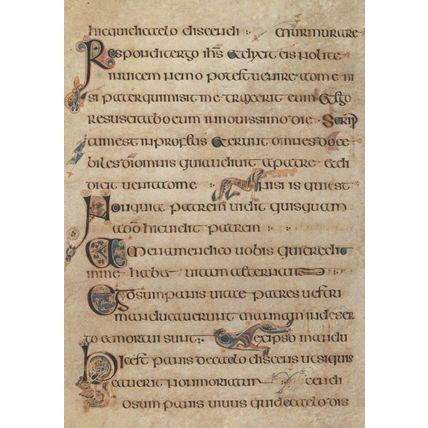 hic qui de caelo discendi murmurare
Respondit ergo ihs et dixit eis nolite
invicem nemo potest venire ad me ni
si pater qui misit me traxerit eum et ego
resuscitabo eum in novissimo die Scrip
tum est in profetis et erunt omnes doce
biles di omnis qui audiunt a patre et di
dicit venit ad me nisi is qui est
Non quia patrem vidit quisquam
a do hic vidit patrem
Amen amen dico vobis qui credit
in me habet vitam aeternam
Ego sum panis vitae patres vestri
manducaverunt manna in deser
to et mortui sunt ex ipso mandu
Hic est panis de caelo discens ut siquis
caverit non moriatur cendi
go sum panis vivus qui de caelo dis